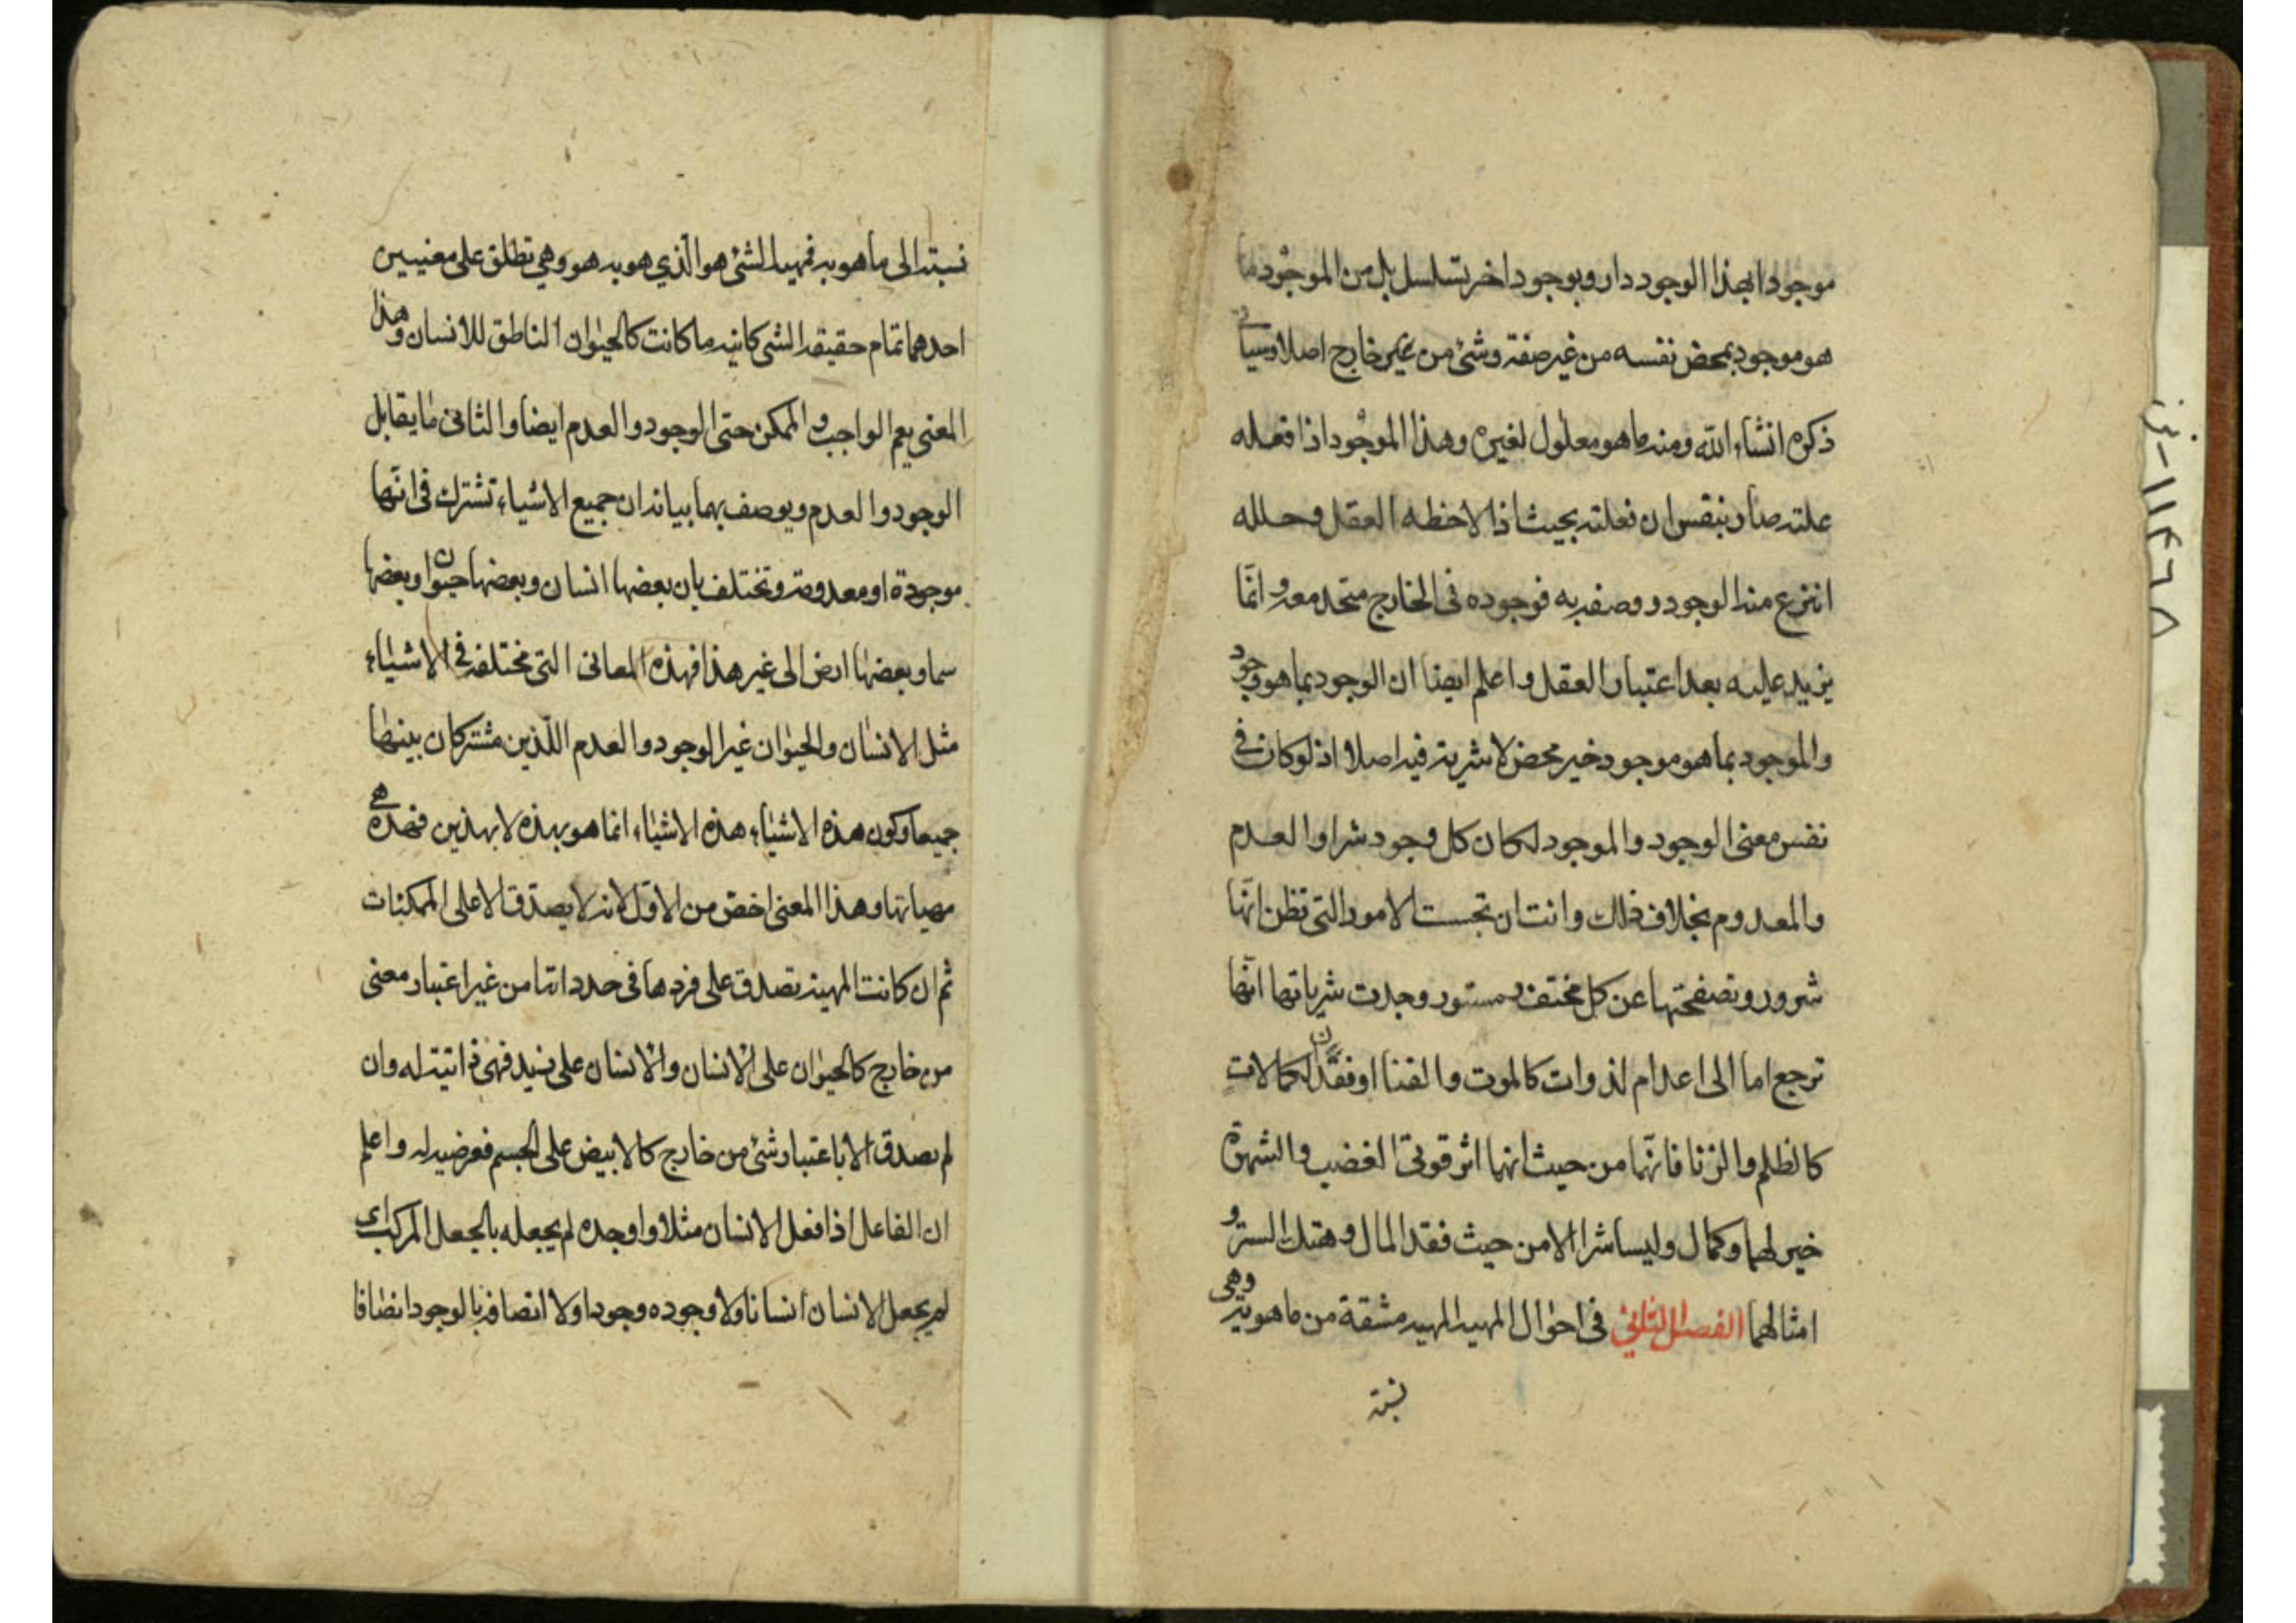 موجودا بهذا الوجود دار وبوجود اخر يتسلسل بل من الموجود ما
هو موجود بمحض نفسه من غير صفة وشئ من غير خارج اصلا وسيأتي
ذكره انشاء الله ومنه ما هو معلول لغيره وهذا الموجود اذا فعله
علته صار بنفس ان فعلته بحيث اذا لاحظه العقل وحلله
انتزع منه الوجود ووصفه به فوجوده في الخارج متحد معه وانّما
يزيد عليه بعد اعتبار العقل واعلم ايضا ان الوجود بما هو وجود
والموجود بما هو موجود خير محض لا شرية فيه اصلا اذ لو كان في
نفس معنى الوجود والموجود لكان كل وجود شرا والعدم
والمعدوم بخلاف ذلك وانت ان تجست الامور التي تظن انّها
شرور وتصفحتها عن كل مختف ومستور وجدت شرياتها انّها
ترجع اما الى اعدام لذوات كالموت والفنا او فقدان لكمالات
كالظلم والزنا فانّهما من حيث انهما اثر قوتي الغضب والشهوة
خير لهما وكمال وليسا شرا الا من حيث فقد المال وهتك الستر و
امثالهما الفصل الثاني في احوال المهية المهية مشقة من ما هو وهي
نسبة
نسبته الى ما هو به فمهية الشئ هو الّذي هو به هو وهي تطلق على معنيين
احدهما تمام حقيقة الشي كائنه ما كانت كالحيوان الناطق للانسان وهذا
المعنى يعم الواجب والممكن حتى الوجود والعدم ايضا والثاني ما يقابل
الوجود والعدم ويوصف بهما بيانه ان جميع الاشياء تشترك في انّها
موجودة او معدومة وتختلف بان بعضها انسان وبعضها حيوان وبعضها
سما وبعضها ارض الى غير هذا فهذه المعاني التي مختلفة في الاشياء
مثل الانسان والحيوان غير الوجود والعدم اللّذين مشتركان بينها
جميعا وكون هذه الاشياء هذه الاشياء انما هو بهذه لا بهذين فهذه هي
مهياتها وهذا المعنى اخصّ من الاوّل لانه لا يصدق الا على الممكنات
ثم ان كانت المهية تصدق على فردها في حد ذاتها من غير اعتبار معنى
من خارج كالحيوان على الانسان والانسان على زيد فهي ذاتية له وان
لم يصدق الا باعتبار شئ من خارج كالابيض على الجسم فعرضية له واعلم
ان الفاعل اذا فعل الانسان مثلا واوجده لم يجعله بالجعل المركب اى
لم يجعل الانسان انسانا ولا وجوده وجودا ولا اتصافه بالوجود اتصافا